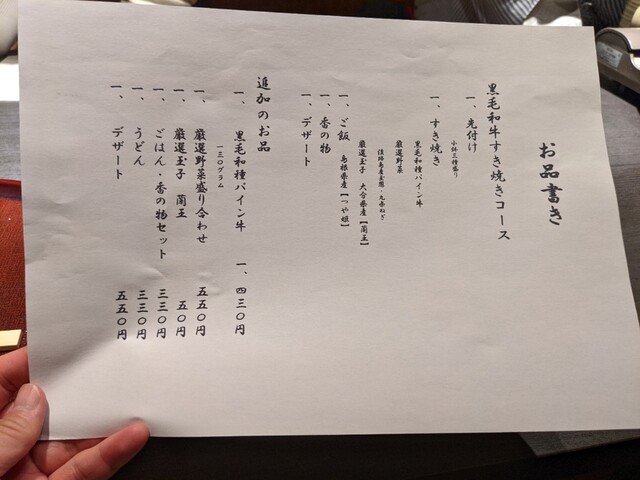 お品書き
黒毛和牛すき焼きコース
一、先付け
小鉢三種盛り
一、すき焼き
黒毛和種パイン牛
厳選野菜
淡路島産玉葱・九条ねぎ
厳選玉子 大分県産【蘭王】
一、ご飯 島根県産【つや姫】
一、香の物
一、デザート
追加のお品
一、黒毛和種パイン牛 一、四三〇円
一三〇グラム
一、厳選野菜盛り合わせ 五五〇円
一、厳選玉子 蘭王 五〇円
一、ごはん・香の物セット 三三〇円
一、うどん 三三〇円
一、デザート 五五〇円